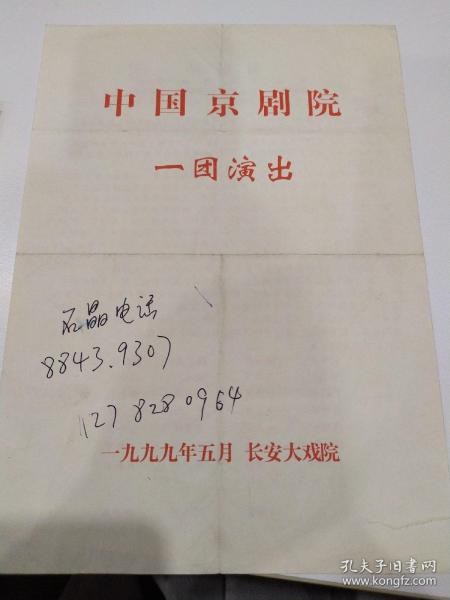 中国京剧院
一团演出
石晶电话
8843.9307
127 828 0964
一九九九年五月 长安大戏院
孔夫子旧书网
www.kongfz.com